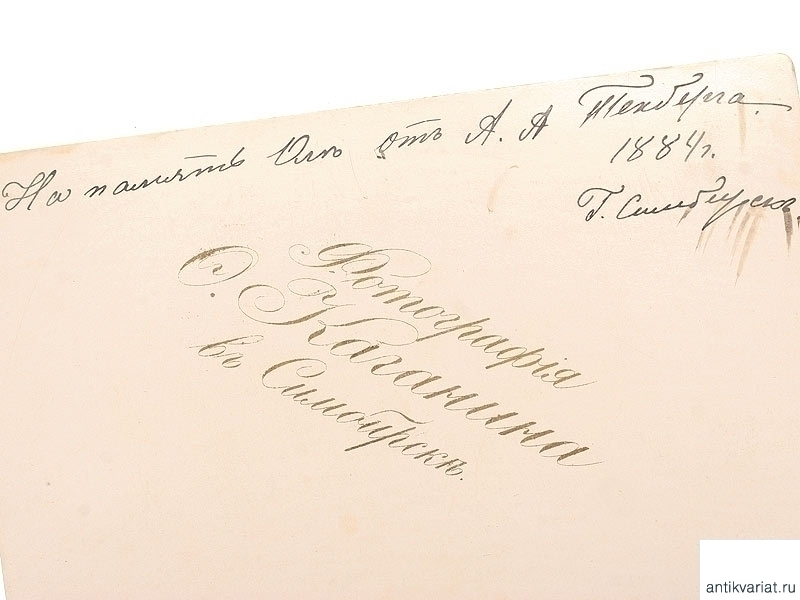 На память Оле отъ А. А Тенберга.
1884 г.
Г. Симбирскъ
Фотографія
О. Каганина
въ Симбирскѣ.
antikvariat.ru